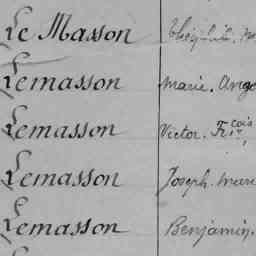 Le Masson
Lemasson Marie. Ange
Lemasson Victor. Fr.cois
Lemasson Joseph. Marie
Lemasson Benjamin.